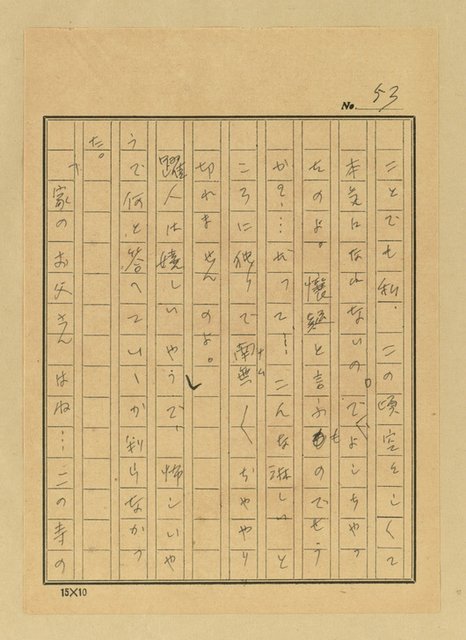 No. 53
ことでも私、この頃空々しくて
本気になれないの。でくよしちやつ
たのよ。懐疑と言ふものでせう
か?…だつて…こんな淋しいと
ころに独りで南無〱ぢややり
ナム
切れませんのよ。
躍人は嬉しいやうで、怖しいや
うで何と答へていゝか判らなかつ
た。
「家のお父さんはね…この寺の
15×10